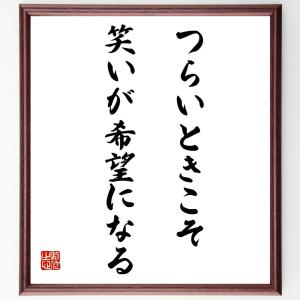 つらいときこそ
笑いが希望になる